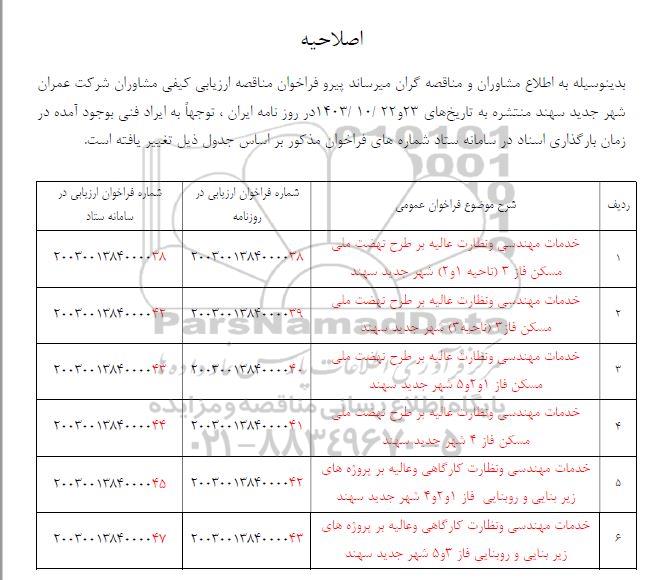 اصلاحیه
بدینوسیله به اطلاع مشاوران و مناقصه گران میرساند پیرو فراخوان مناقصه ارزیابی کیفی مشاوران شرکت عمران
شهر جدید سهند منتشره به تاریخ‌های ۲۳و۲۲ /۱۰ /۱۴۰۳در روز نامه ایران ، توجهاً به ایراد فنی بوجود آمده در
زمان بارگذاری اسناد در سامانه ستاد شماره های فراخوان مذکور بر اساس جدول ذیل تغییر یافته است.
ردیف شرح موضوع فراخوان عمومی شماره فراخوان ارزیابی در شماره فراخوان ارزیابی در
روزنامه سامانه ستاد
خدمات مهندسی ونظارت عالیه بر طرح نهضت ملی
۱ ۲۰۰۳۰۰۱۳۸۴۰۰۰۰۳۸ ۲۰۰۳۰۰۱۳۸۴۰۰۰۰۳۸
مسکن فاز ۳ (ناحیه ۱و۲) شهر جدید سهند
خدمات مهندسی ونظارت عالیه بر طرح نهضت ملی
۲ ۲۰۰۳۰۰۱۳۸۴۰۰۰۰۳۹ ۲۰۰۳۰۰۱۳۸۴۰۰۰۰۴۲
مسکن فاز۳ (ناحیه۳) شهر جدید سهند
خدمات مهندسی ونظارت عالیه بر طرح نهضت ملی
۳ ۲۰۰۳۰۰۱۳۸۴۰۰۰۰۴۰ ۲۰۰۳۰۰۱۳۸۴۰۰۰۰۴۳
مسکن فاز ۱و۲و۵ شهر جدید سهند
خدمات مهندسی ونظارت عالیه بر طرح نهضت ملی
۴ ۲۰۰۳۰۰۱۳۸۴۰۰۰۰۴۱ ۲۰۰۳۰۰۱۳۸۴۰۰۰۰۴۴
مسکن فاز ۴ شهر جدید سهند
خدمات مهندسی ونظارت کارگاهی وعالیه بر پروژه های
۵ ۲۰۰۳۰۰۱۳۸۴۰۰۰۰۴۲ ۲۰۰۳۰۰۱۳۸۴۰۰۰۰۴۵
زیر بنایی و روبنایی فاز ۱و۲و۴ شهر جدید سهند
خدمات مهندسی ونظارت کارگاهی وعالیه بر پروژه های
۶ ۲۰۰۳۰۰۱۳۸۴۰۰۰۰۴۳ ۲۰۰۳۰۰۱۳۸۴۰۰۰۰۴۷
زیر بنایی و روبنایی فاز ۳و۵ شهر جدید سهند
ParsNamadData
مرکز فرآوری اطلاعات پارس نماد داده ها
پایگاه اطلاع رسانی مناقصه و مزایده
۰۲۱-۸۸۳۴۹۶۷۰-۵